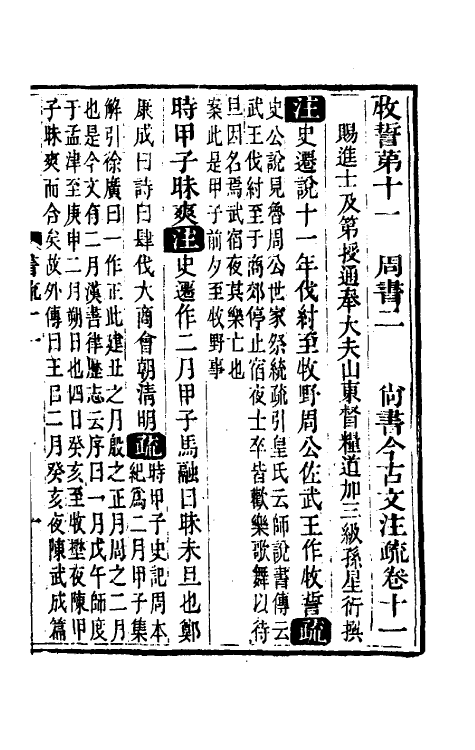 牧誓第十一　周書二　　尚書今古文注疏卷十一
賜進士及第授通奉大夫山東督糧道加三級孫星衍撰
注史遷說十一年伐紂至牧野周公佐武王作牧誓疏
史公說見魯周公世家祭統疏引皇氏云師說書傳云
武王伐紂至于商郊停止宿夜士卒皆歡樂歌舞以待
旦因名焉武宿夜其樂亡也
案此是甲子前夕至牧野事
時甲子昧爽注史遷作二月甲子馬融曰昧未旦也鄭
康成曰詩曰肆伐大商會朝清明疏時甲子史記周本
紀為二月甲子集
解引徐廣曰一作正此建丑之月殷之正月周之二月
也是今文有二月漢書律歷志云序曰一月戊午師度
于孟津至庚申二月朔日也四日癸亥至牧壄夜陳甲
子昧爽而合矣故外傳曰王以二月癸亥夜陳武成篇
書疏十一
一